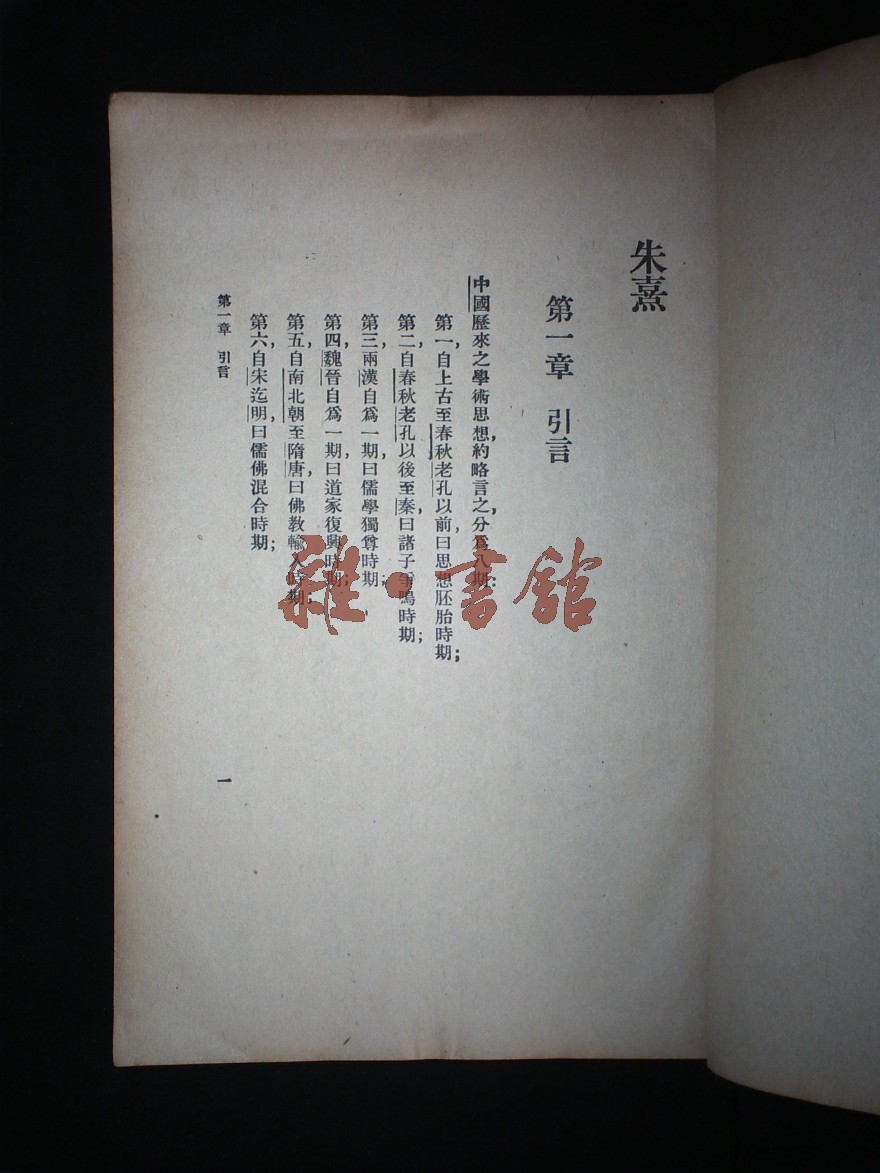 朱熹
第一章　引言
中國歷來之學術思想，約略言之，分爲八期：
第一，自上古至春秋老孔以前，曰思想胚胎時期；
第二，自春秋老孔以後至秦，曰諸子爭鳴時期；
第三，兩漢自爲一期，曰儒學獨尊時期；
第四，魏晉自爲一期，曰道家復興時期；
第五，自南北朝至隋唐，曰佛教輸入時期；
第六，自宋迄明，曰儒佛混合時期；
第一章　引言
一
雜·書館